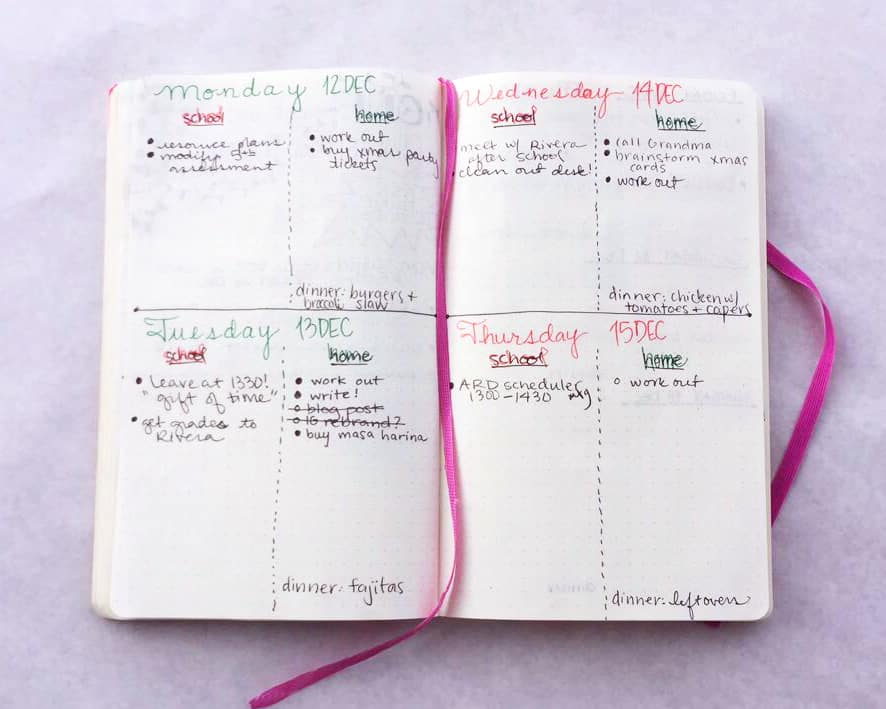 Monday 12DEC
school
• resource plans
• modify
assessment
home
• work out
• buy xmas party
tickets
dinner: burgers +
broccoli slaw
Tuesday 13DEC
school
• leave at 1330!
"gift of time"
• get grades to
Rivera
home
• work out
• write!
o blog post
o IG rebrand?
• buy masa harina
dinner: fajitas
Wednesday 14DEC
school
meet w/ Rivera
after school
clean out desk!
home
• call Grandma
• brainstorm xmas
cards
• work out
dinner: chicken w/
tomatoes + capers
Thursday 15DEC
school
• ARD scheduler
1300-1430
home
o work out
dinner: leftovers